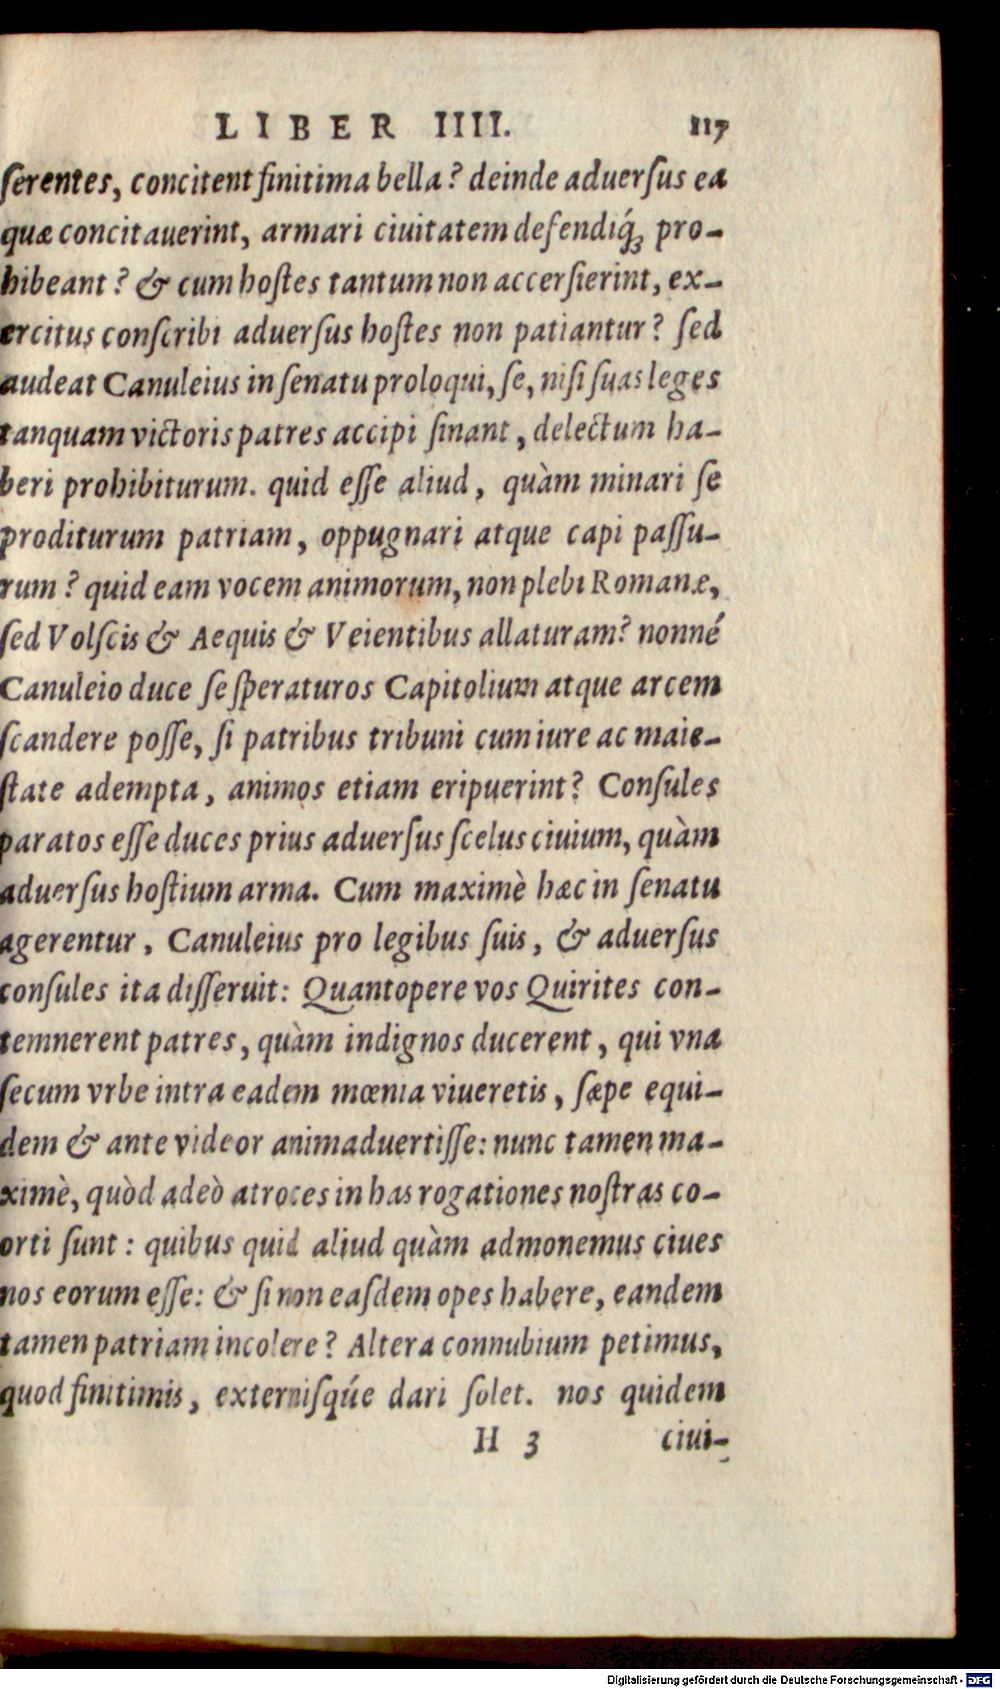 LIBER IIII. 117
ſerentes, concitent finitima bella? deinde aduerſus ea
quæ concitauerint, armari ciuitatem defendiq́ꝫ pro-
hibeant? & cum hoſtes tantum non accerſierint, ex-
ercitus conſcribi aduerſus hoſtes non patiantur? ſed
audeat Canuleius in ſenatu proloqui, ſe, niſi ſuas leges
tanquam victoris patres accipi ſinant, delectum ha-
beri prohibiturum. quid eſſe aliud, quàm minari ſe
proditurum patriam, oppugnari atque capi paſſu-
rum? quid eam vocem animorum, non plebi Romanæ,
ſed Volſcis & Aequis & Veientibus allaturam? nonné
Canuleio duce ſe ſperaturos Capitolium atque arcem
ſcandere poſſe, ſi patribus tribuni cum iure ac maie-
ſtate adempta, animos etiam eripuerint? Conſules
paratos eſſe duces prius aduerſus ſcelus ciuium, quàm
aduerſus hoſtium arma. Cum maximè hæc in ſenatu
agerentur, Canuleius pro legibus ſuis, & aduerſus
conſules ita diſſeruit: Quantopere vos Quirites con-
temnerent patres, quàm indignos ducerent, qui vna
ſecum vrbe intra eadem mœnia viueretis, ſæpe equi-
dem & ante videor animaduertiſſe: nunc tamen ma-
ximè, quòd adeò atroces in has rogationes noſtras co-
orti ſunt: quibus quid aliud quàm admonemus ciues
nos eorum eſſe: & ſi non eaſdem opes habere, eandem
tamen patriam incolere? Altera connubium petimus,
quod finitimis, externiſqúe dari ſolet. nos quidem
H 3 ciui-
Digitalisierung gefördert durch die Deutsche Forschungsgemeinschaft - DFG